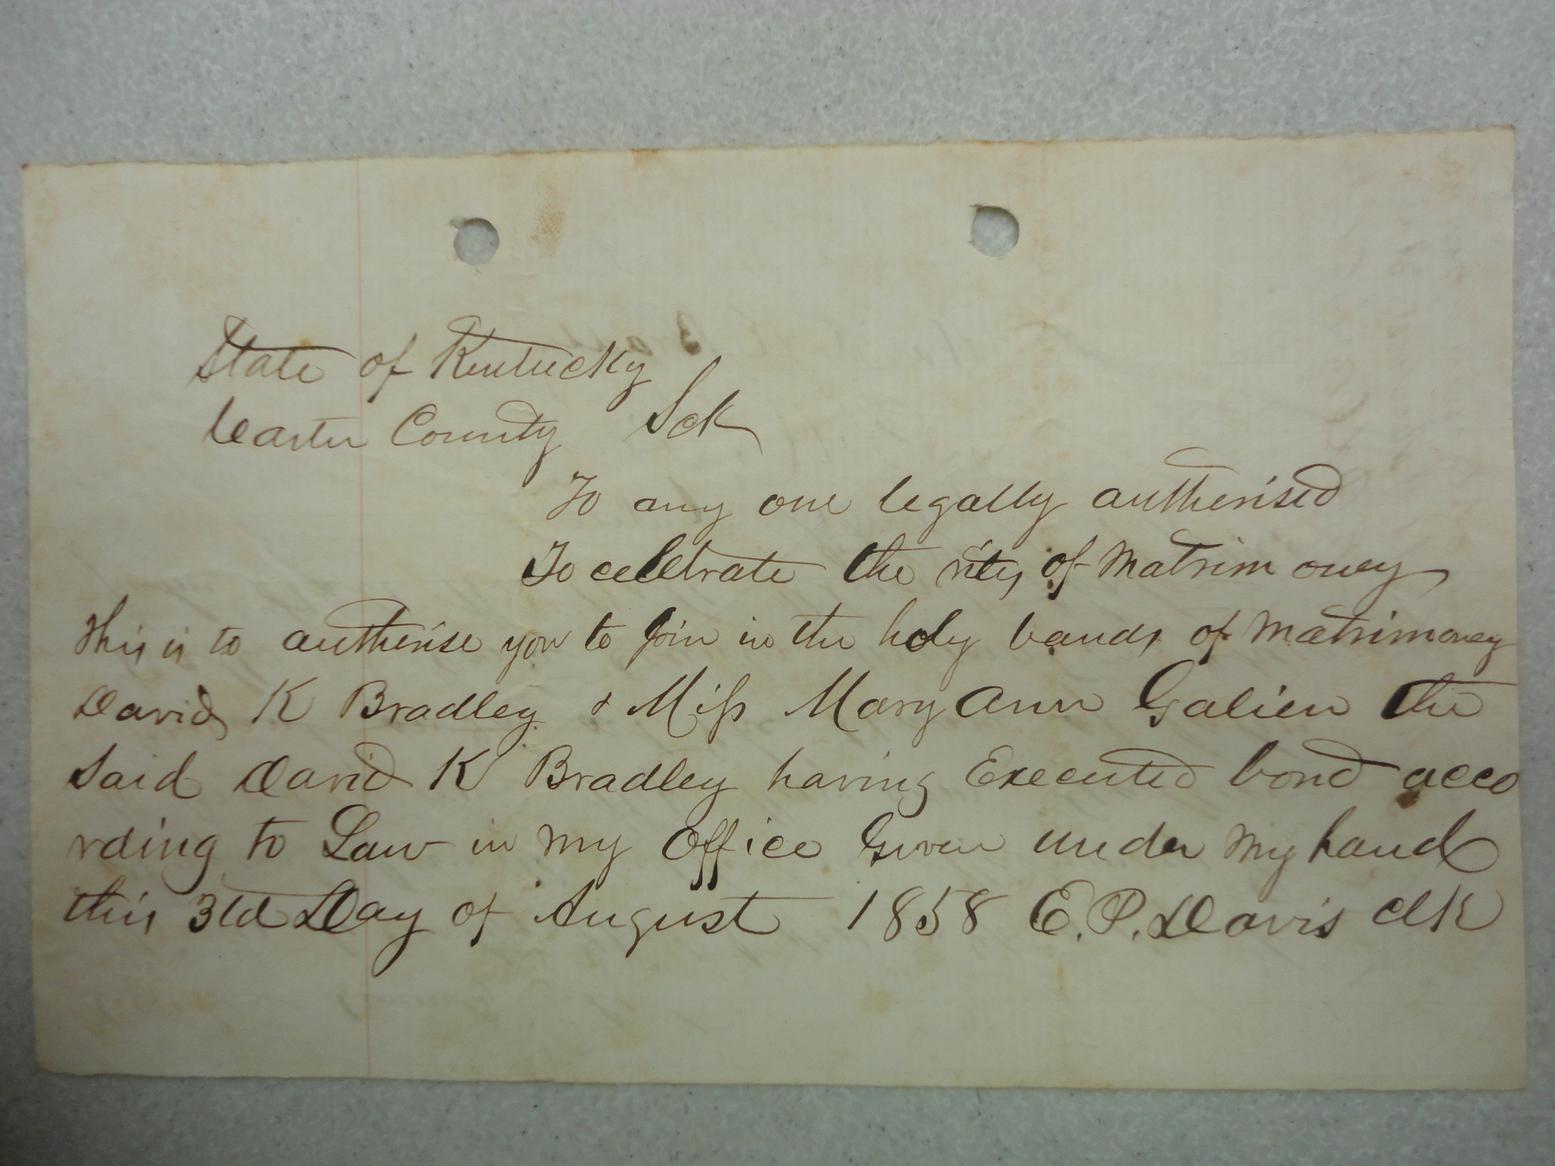 State of Kentucky
Carter County Sct
To any one legally autherised
To celebrate the rites of Matrimoney
This is to autherise you to join in the holy bands of Matrimoney
David K Bradley & Miss Mary Ann Galien the
Said David K Bradley having Executed bond acco
rding to Law in my office Given under my hand
this 3td Day of August 1858 E. P. Davis clk